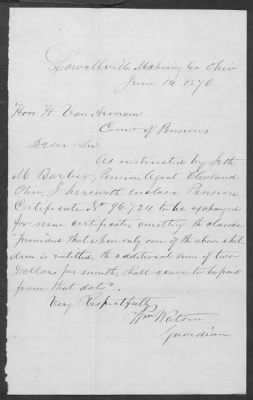 Lowellville Mahoning Co Ohio
June 14 1870
Hon H Van Aernam
Com of Pensions
Dear Sir
As instructed by Seth
M. Barber, Pension Agent Cleveland
Ohio, I herewith enclose Pension
Certificate No 96724 to be exchanged
for new certificate, omitting the clause
"provided that when only one of the above chil
dren is entitled, the additional sum of two
Dollars per month, shall cease to be paid
from that date".
Very Respectfully
Wm Watson
Guardian